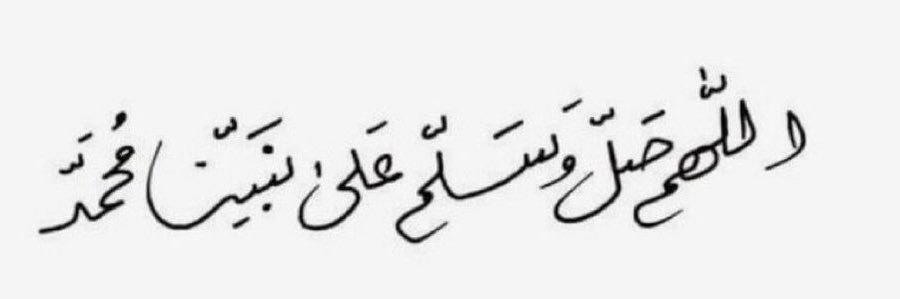 اللّٰهم صَلِّ وَسَلِّم عَلىٰ نَبَيِّنا مُحمَّد